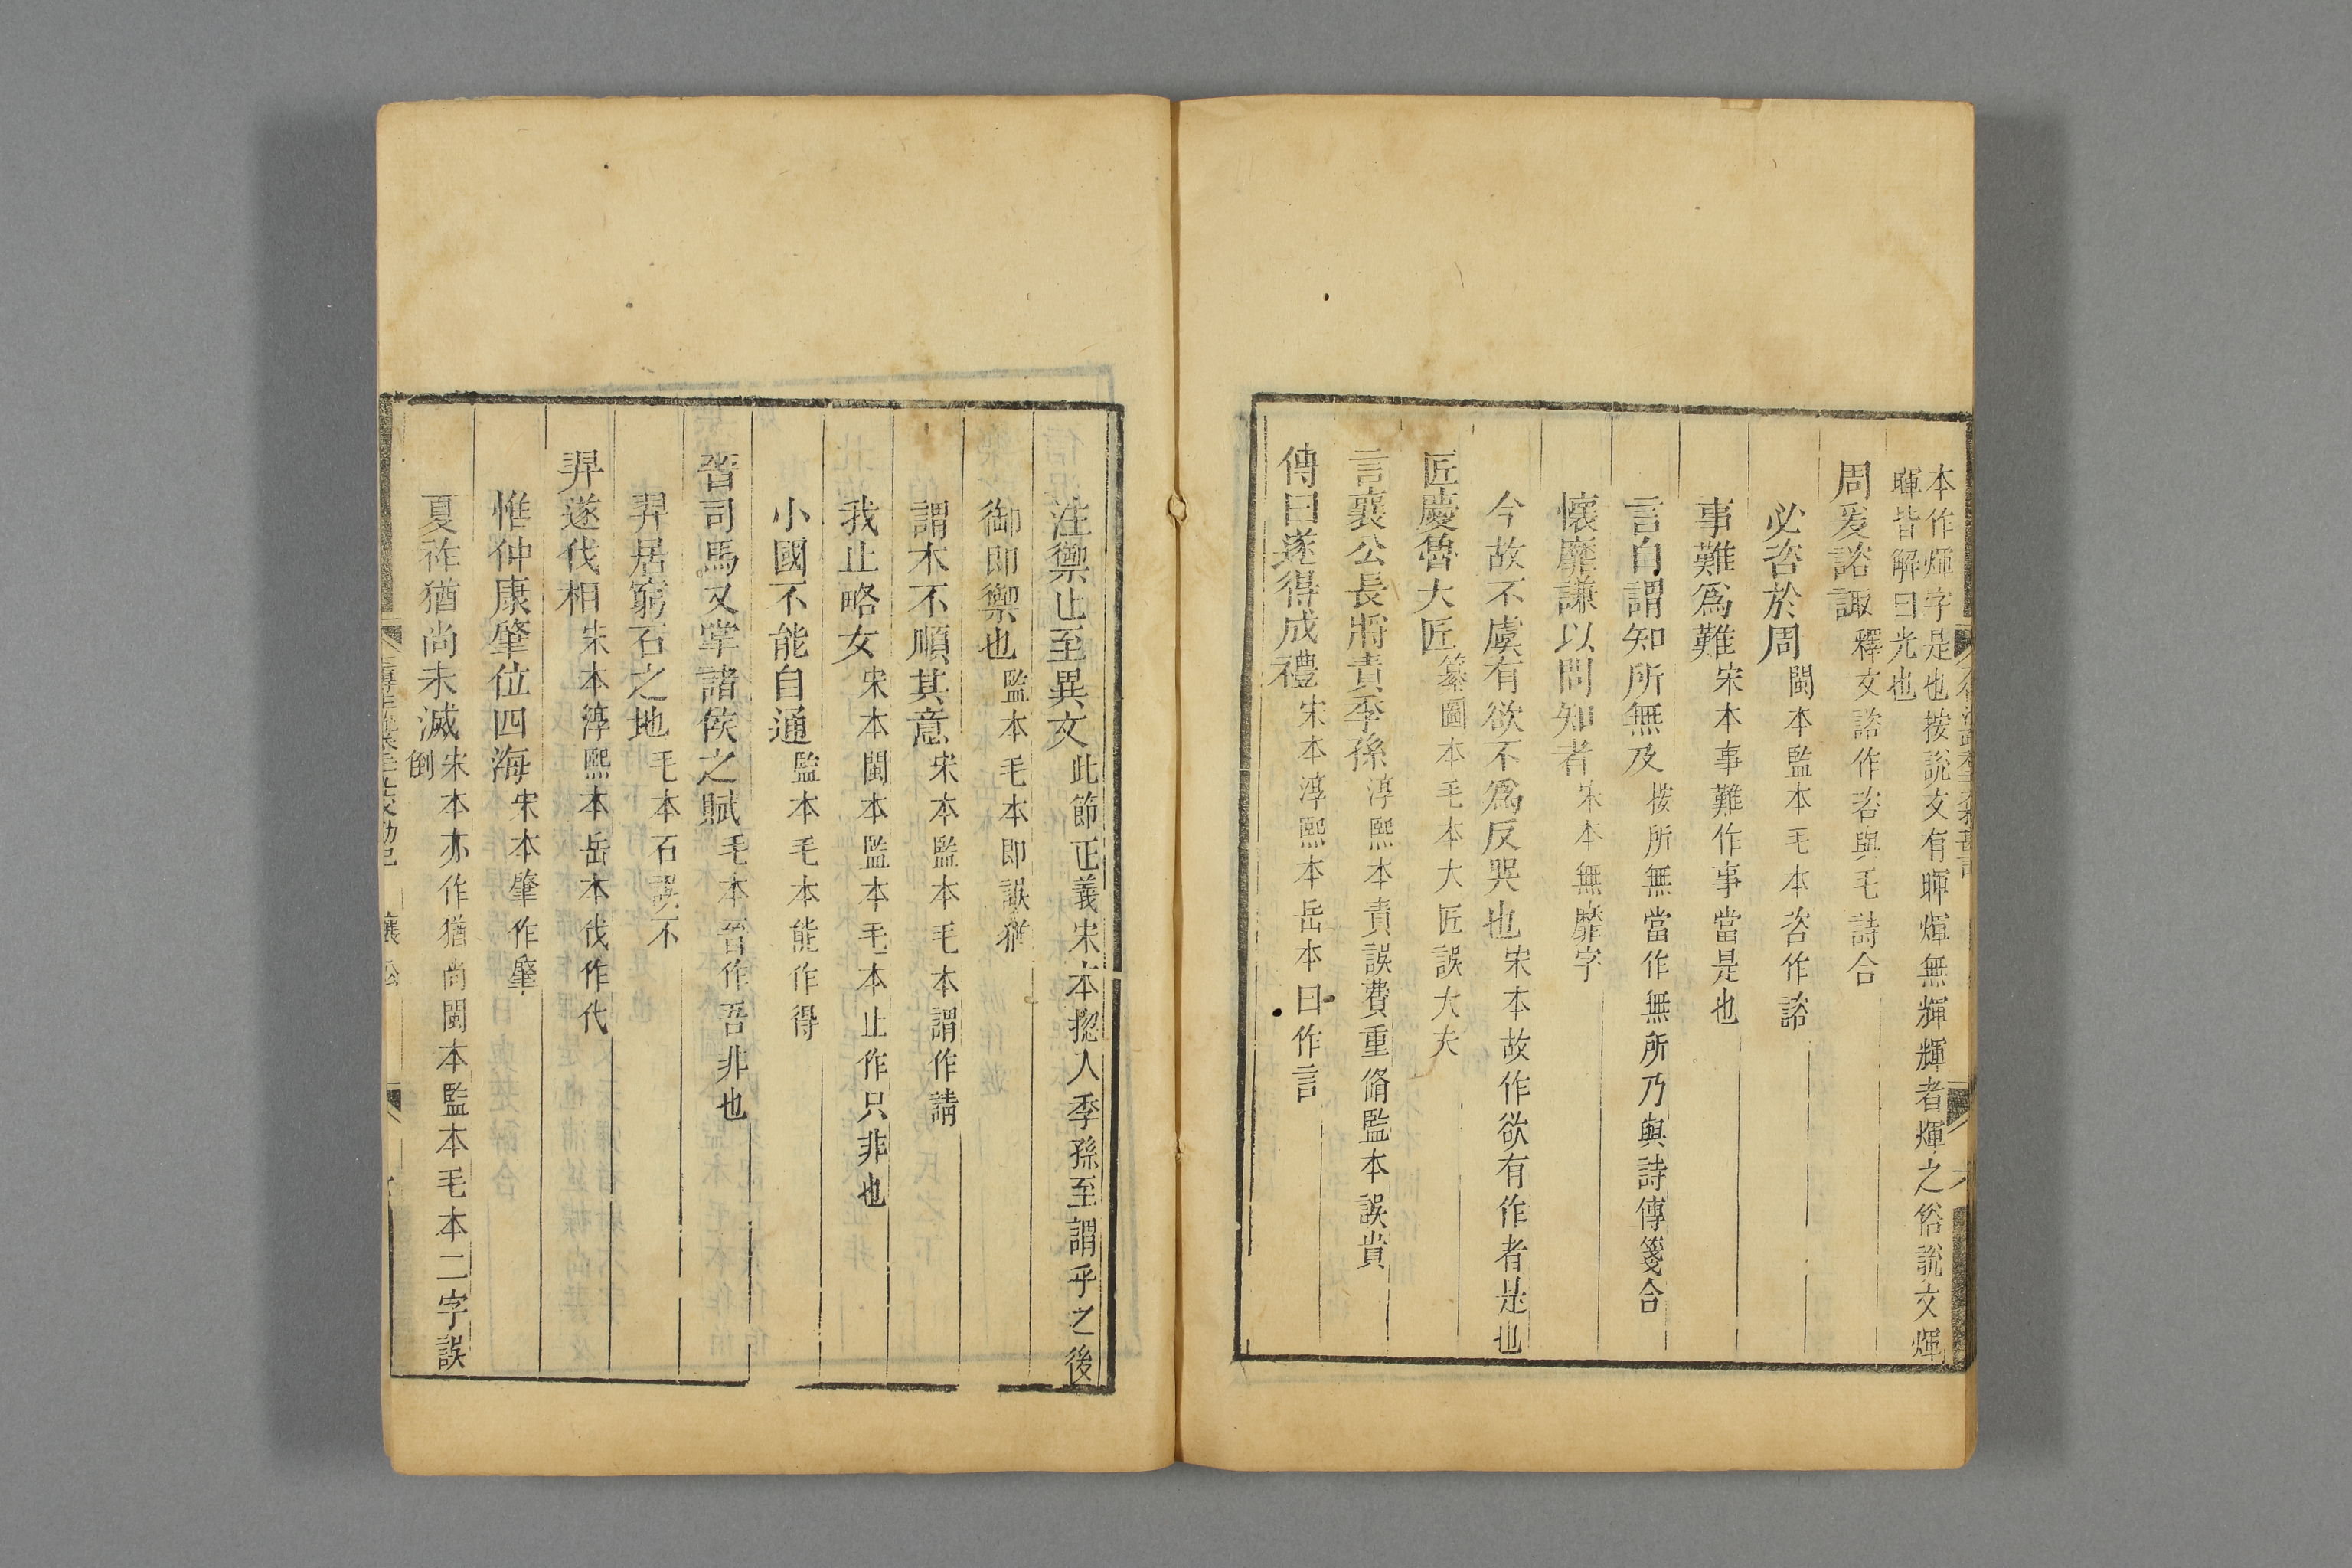 本作煇字是也按說文有暉煇無輝輝者煇之俗說文煇
暉皆解曰光也
周爰諮諏釋文諮作咨與毛詩合
必咨於周閩本監本毛本咨作諮
事難爲難宋本事難作事當是也
言自謂知所無及按所無當作無所乃與詩傳箋合
懷靡謙以問知者宋本無靡字
今故不虞有欲不爲反哭也宋本故作欲有作者是也
匠慶魯大匠纂圖本毛本大匠誤大夫
言襄公長將責季孫淳熙本責誤費重脩監本誤貴
傳曰遂得成禮宋本淳熙本岳本曰作言
注禦止至異文此節正義宋本揔入季孫至謂乎之後
御即禦也監本毛本即誤猶
謂木不順其意宋本監本毛本謂作請
我止略女宋本閩本監本毛本止作只非也
小國不能自通監本毛本能作得
晉司馬又掌諸侯之賦毛本晉作吾非也
羿居窮石之地毛本石誤不
羿遂伐相宋本淳熙本岳本伐作代
惟仲康肇位四海宋本肇作肈
夏祚猶尚未滅宋本亦作猶尚閩本監本毛本二字誤
倒